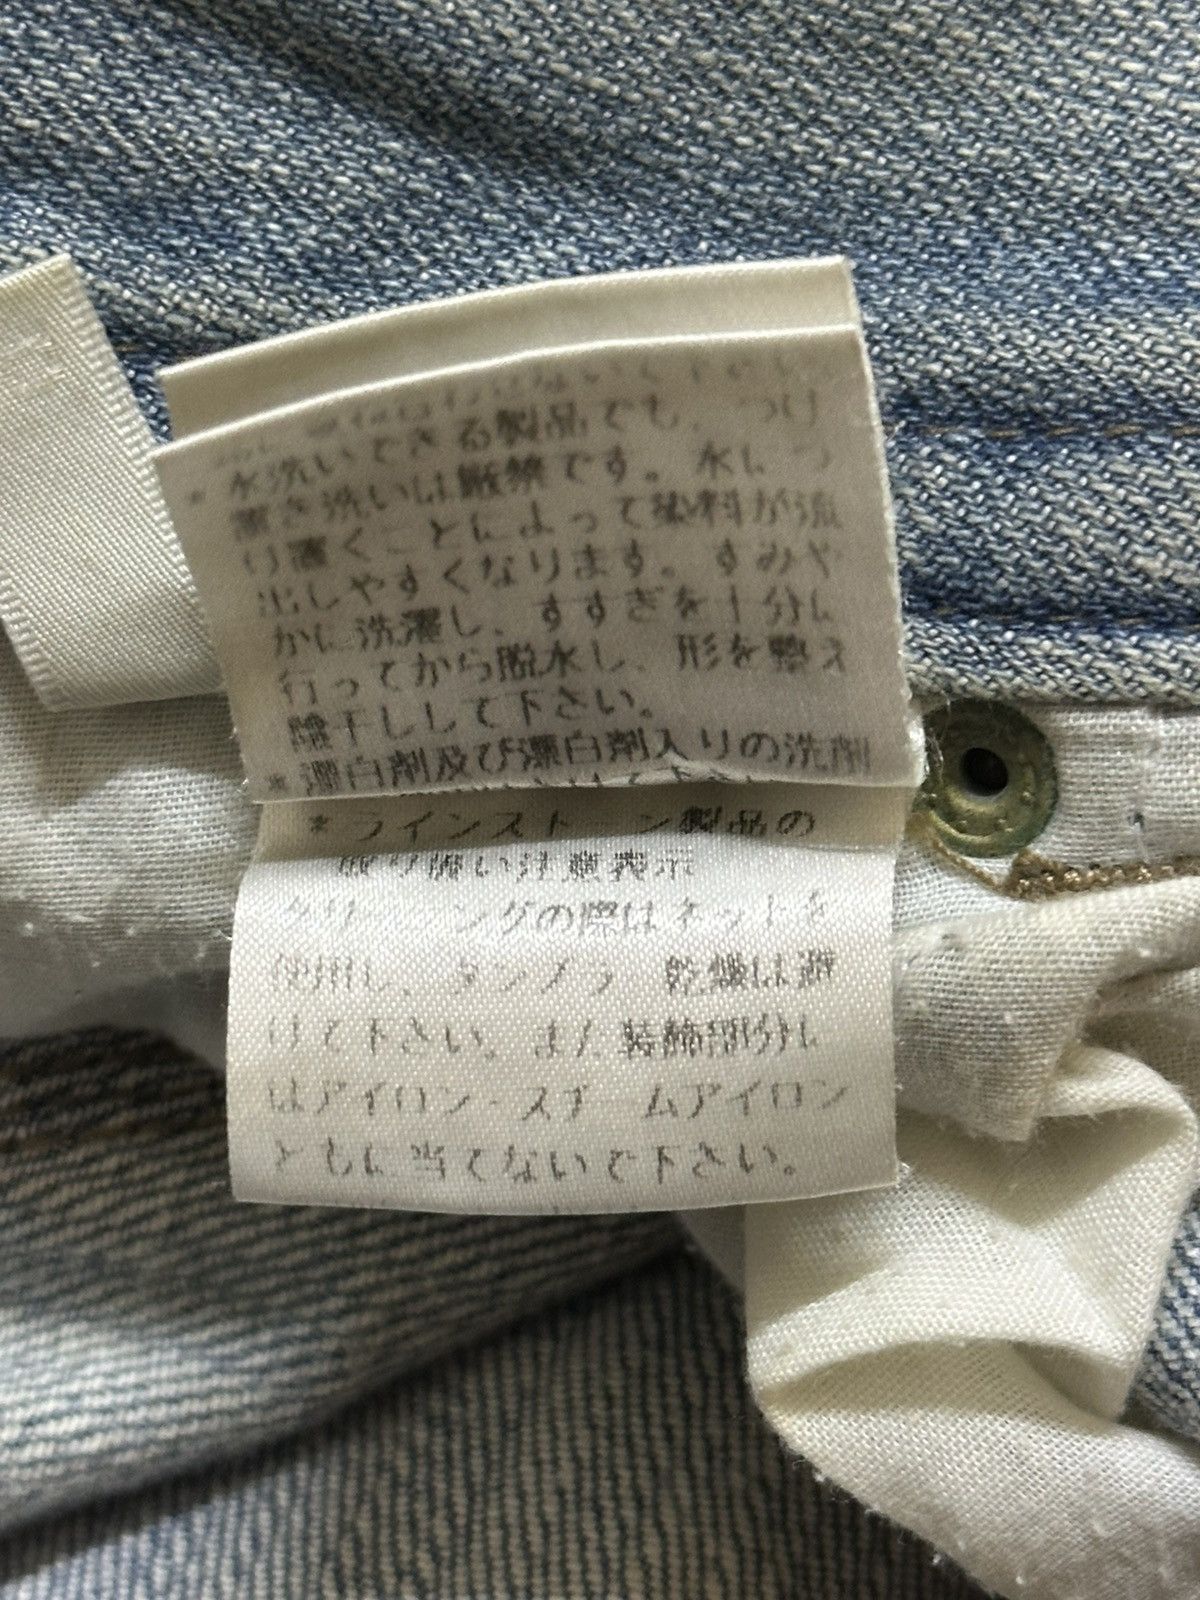 *水洗いできる製品でも、つけ
置き洗いは厳禁です。水につ
け置くことによって染料が流
出しやすくなります。すみや
かに洗濯し、すすぎを十分に
行ってから脱水し、形を整え
陰干しして下さい。
*漂白剤及び漂白剤入りの洗剤
*ラインストーン製品の
取り扱い注意表示
クリーニングの際はネットを
使用し、タンブラー乾燥は避
けて下さい。また装飾部分に
はアイロン・スチームアイロン
ともに当てないで下さい。